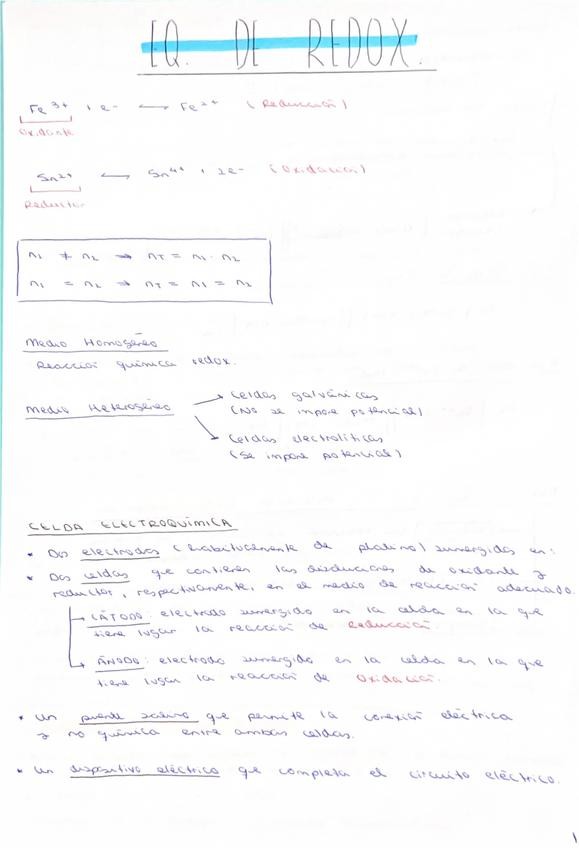 EQ. DE REDOX.
Fe³⁺ + e⁻ ⟷ Fe²⁺ (Reducción)
Oxidante
Sn²⁺ ⟷ Sn⁴⁺ + 2e⁻ (Oxidación)
Reductor
n₁ ≠ n₂ ⇒ nT = n₁ · n₂
n₁ = n₂ ⇒ nT = n₁ = n₂
Medio Homogéneo
Reacción química redox.
Medio Heterogéneo
Celdas galvánicas
(No se impone potencial)
Celdas electrolíticas
(Se impone potencial)
CELDA ELECTROQUÍMICA
* Dos electrodos (habitualmente de platino) sumergidos en:
* Dos celdas que contienen las disoluciones de oxidante y
reductor, respectivamente, en el medio de reacción adecuado.
CÁTODO: electrodo sumergido en la celda en la que
tiene lugar la reacción de Reducción.
ÁNODO: electrodo sumergido en la celda en la que
tiene lugar la reacción de Oxidación.
* Un puente salino que permite la conexión eléctrica
y no química entre ambas celdas.
* Un dispositivo eléctrico que completa el circuito eléctrico.
1